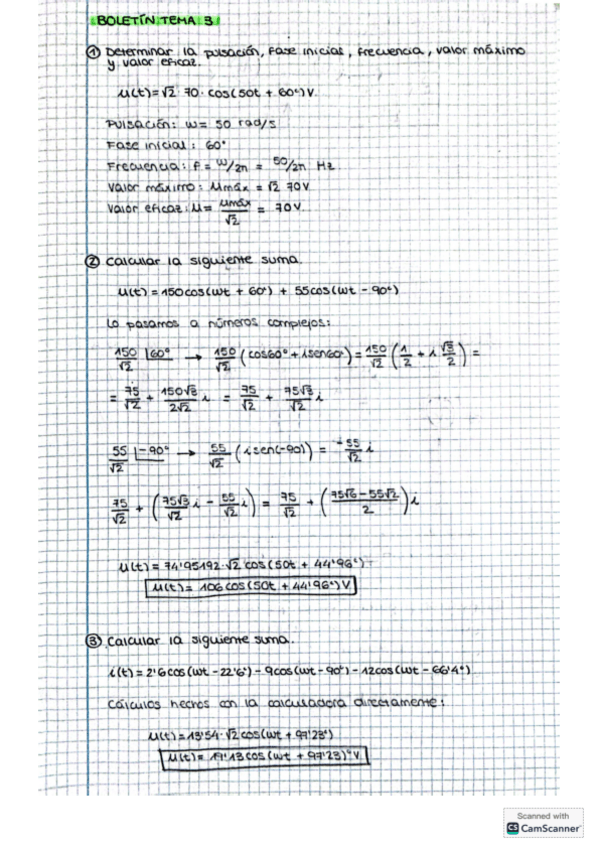 BOLETÍN TEMA 3
① Determinar la pulsación, fase inicial, frecuencia, valor máximo
y valor eficaz.
u(t)=√2 · 70 · cos(50t + 60º)V.
Pulsación: w= 50 rad/s
Fase inicial: 60º
Frecuencia: f = w/2π = 50/2π Hz.
Valor máximo: umáx = √2 70V
Valor eficaz: u= umáx/√2 = 70V.
② Calcular la siguiente suma.
u(t) = 150cos(wt + 60º) + 55cos(wt - 90º)
Lo pasamos a números complejos:
150/√2 |60º → 150/√2 (cos60º + isen60º) = 150/√2 (1/2 + i √3/2) =
= 75/√2 + 150√3/2√2 i = 75/√2 + 75√3/√2 i
55/√2 |-90º → 55/√2 (isen(-90)) = -55/√2 i
75/√2 + (75√3/√2 i - 55/√2 i) = 75/√2 + (75√6-55√2/2) i
u(t) = 74'95192·√2 cos(50t + 44'96º)
u(t) = 106 cos(50t + 44'96º)V
③ Calcular la siguiente suma.
i(t) = 2'6cos(wt - 22'6º) - 9cos(wt - 90º) - 12cos(wt - 66'4º)
Cálculos hechos con la calculadora directamente:
u(t) = 13'54·√2 cos(wt + 97'23º)
u(t) = 19'13cos(wt + 97'23)º V
Scanned with
CS CamScanner